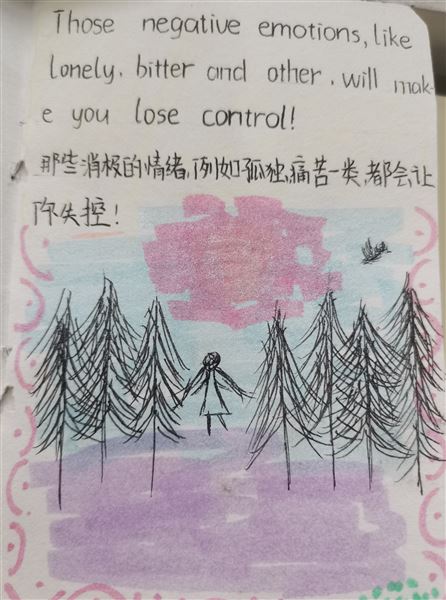 Those negative emotions, like
lonely, bitter and other, will mak-
e you lose control!
那些消极的情绪,例如孤独,痛苦一类,都会让
你失控!